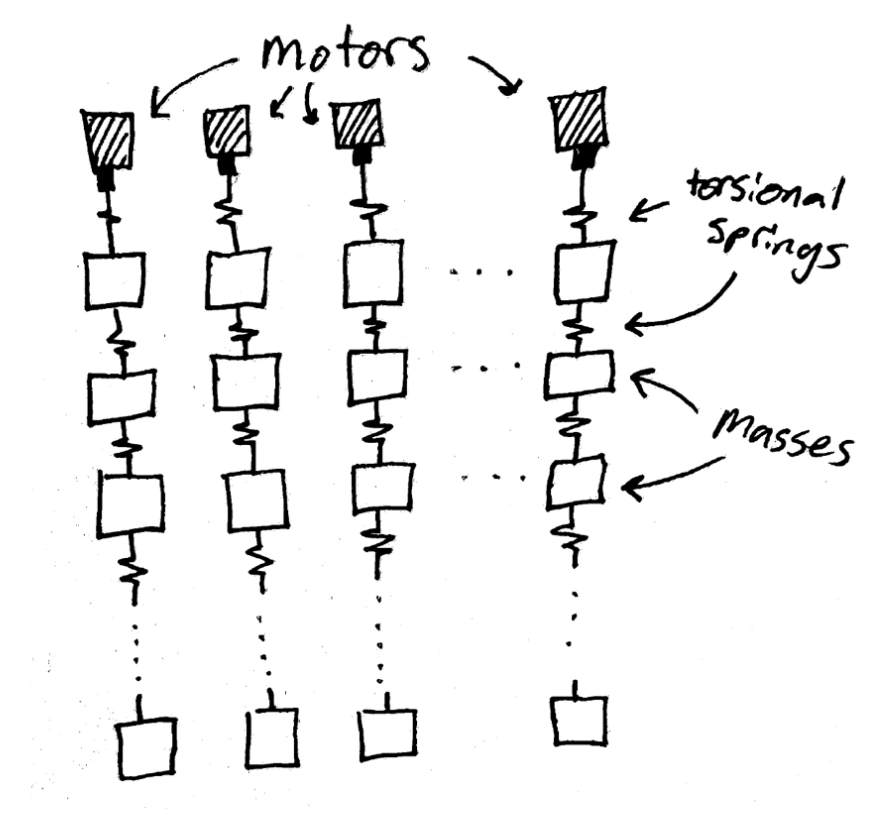 motors
torsional
springs
Masses